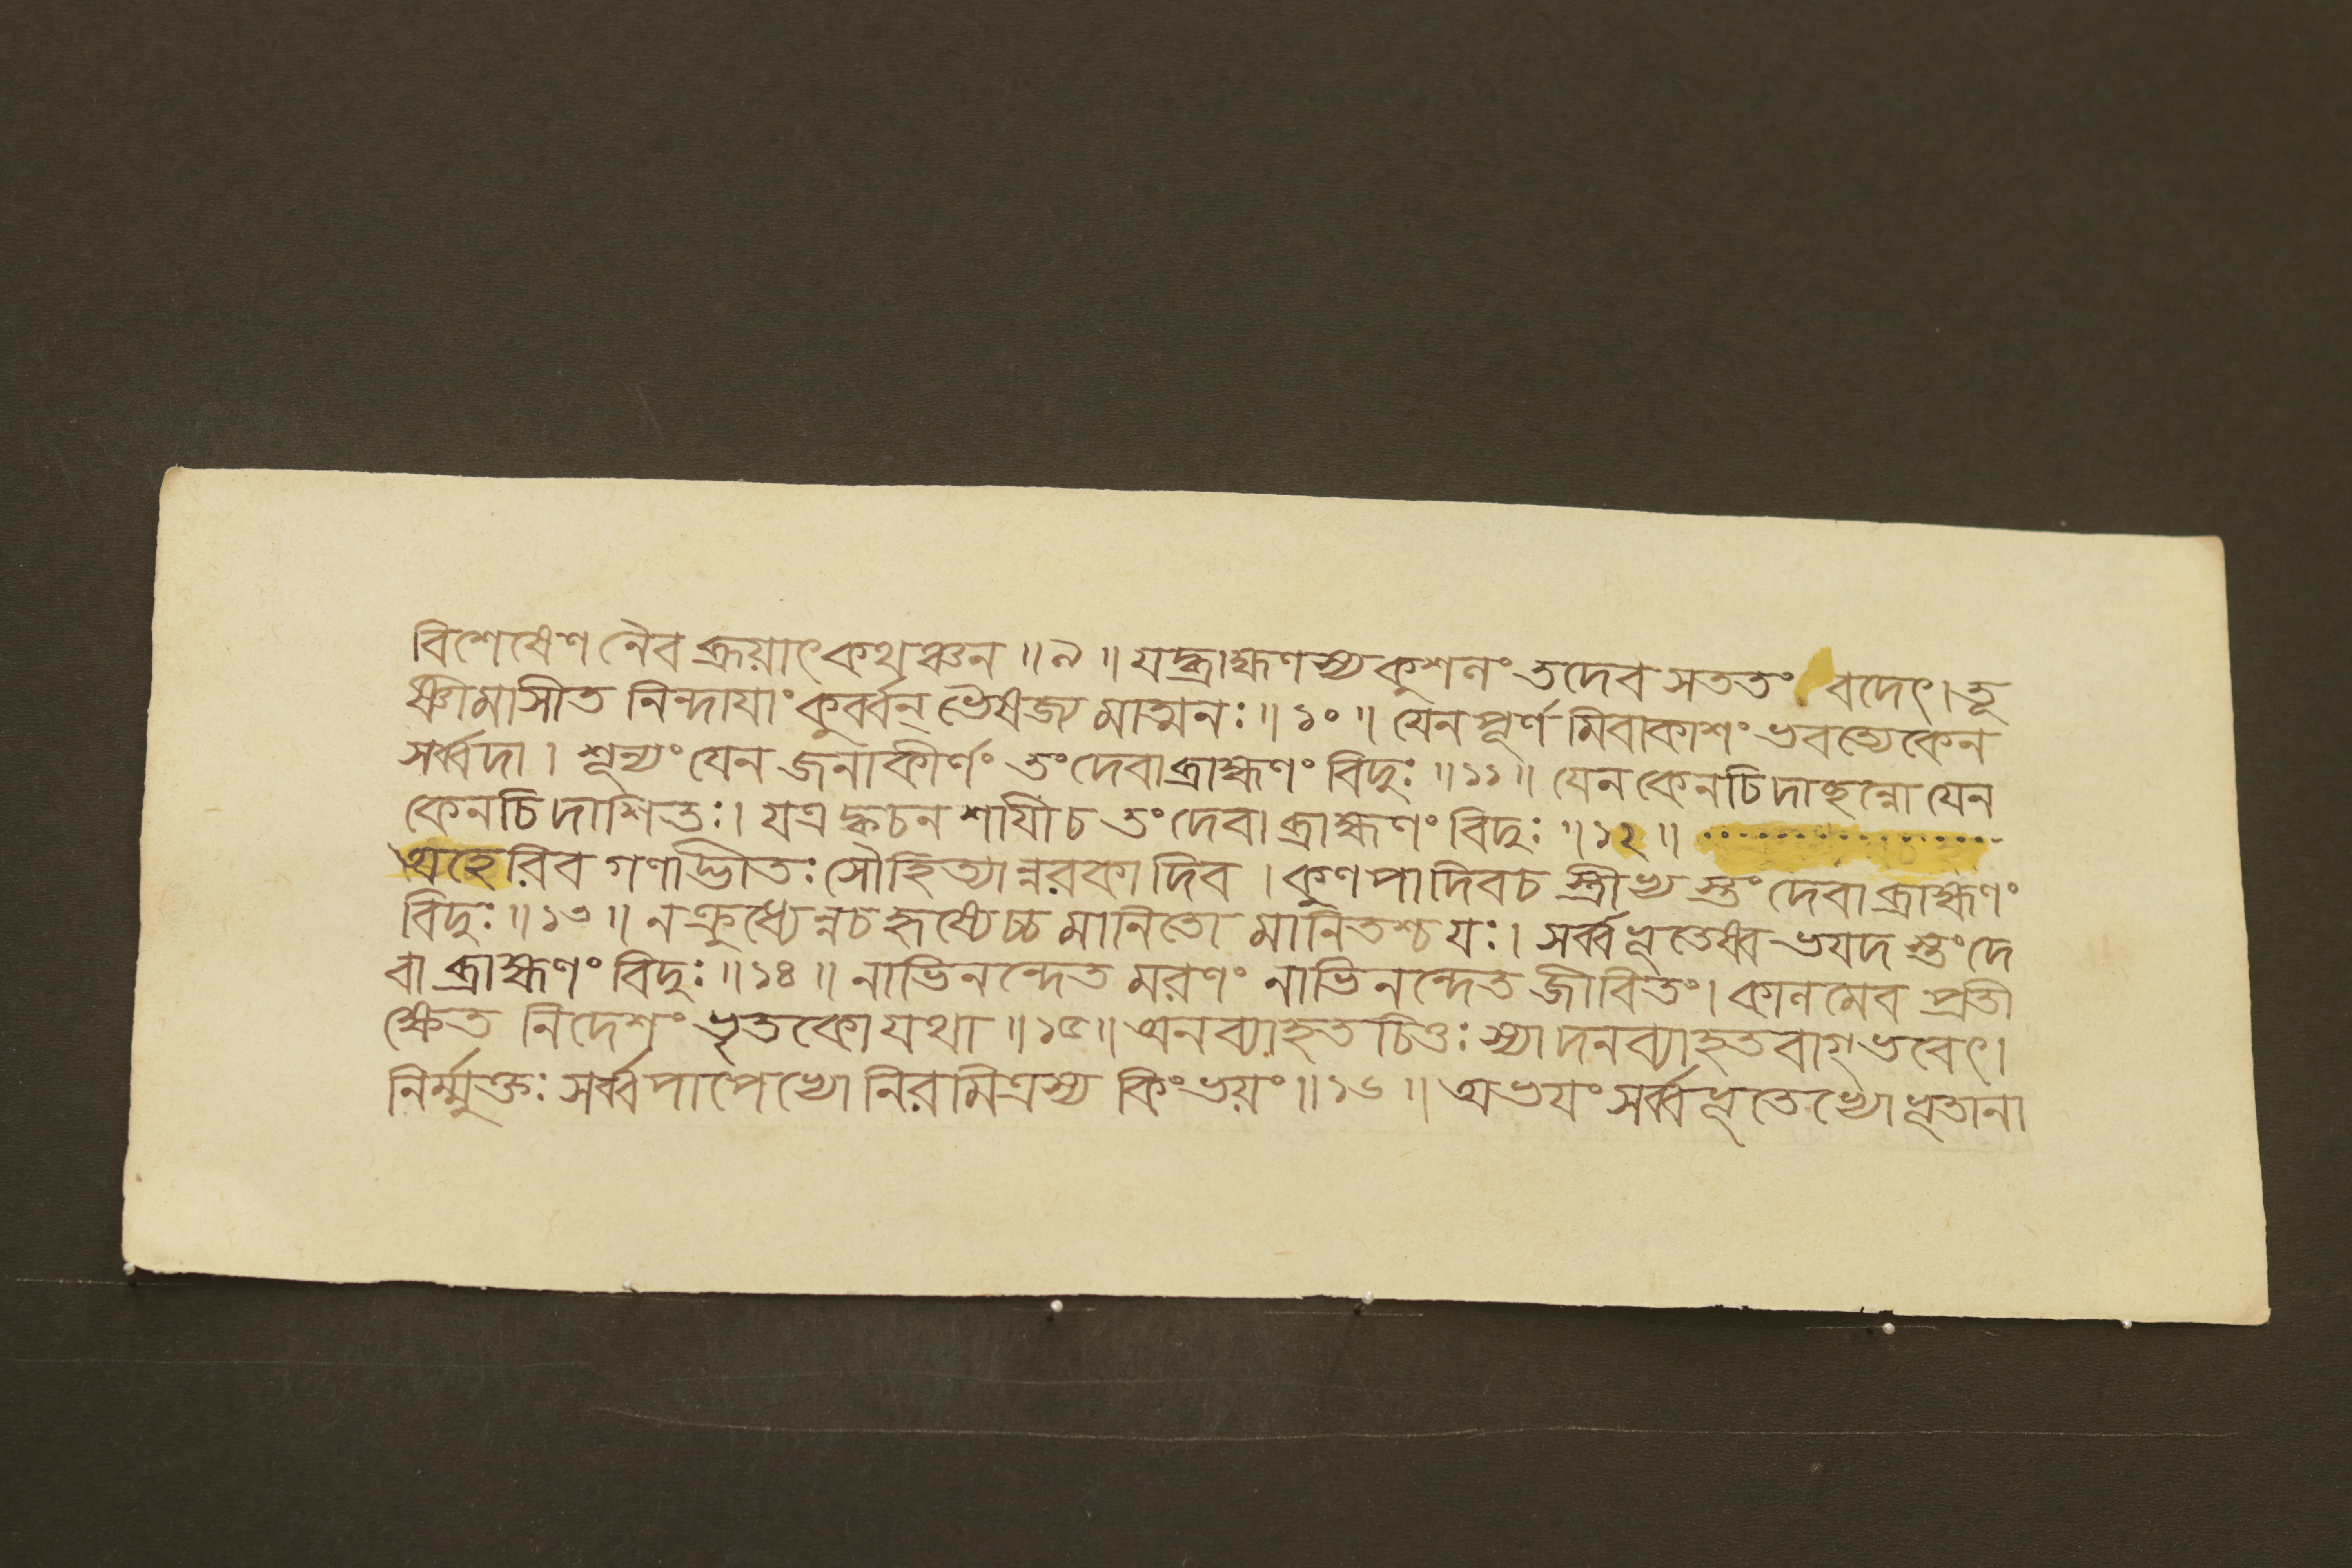 বিশেষেণ নৈব ব্রূয়াৎ কথঞ্চন ॥৯॥ যদ্ব্রাহ্মণস্য কুশলং তদেব সততং বদেৎ। তূ
ষ্ণীমাসীত নিন্দাযাং কুর্ব্বন্ ভৈষজ্যমাত্মনঃ॥১০॥ যেন পূর্ণমিবাকাশং ভবত্যেকেন
সর্ব্বদা। শূন্যং যেন জনাকীর্ণং তং দেবা ব্রাহ্মণং বিদুঃ॥১১॥ যেন কেনচিদাছন্নো যেন
কেনচিদাশিতঃ। যত্র ক্বচন শাযী চ তং দেবা ব্রাহ্মণং বিদুঃ॥১২॥
অহেরিব গণাদ্ভীতঃ সৌহিত্যান্নরকাদিব। কুণপাদিব চ স্ত্রীভ্যস্তং দেবা ব্রাহ্মণং
বিদুঃ॥১৩॥ ন ক্রুধ্যেন্ন চ হৃষ্যেচ্চ মানিতো মানিতশ্চ যঃ। সর্ব্বভূতেষ্বভযদস্তং দে
বা ব্রাহ্মণং বিদুঃ॥১৪॥ নাভিনন্দেত মরণং নাভিনন্দেত জীবিতং। কালমেব প্রতী
ক্ষেত নিদেশং ভৃতকো যথা॥১৫॥ অনব্যাহতচিত্তঃ স্যাদনব্যাহতবাগ্ ভবেৎ।
নির্ম্মুক্তঃ সর্ব্বপাপেভ্যো নিরমিত্রস্য কিং ভয়ং॥১৬॥ অভযং সর্ব্বভূতেভ্যো ভূতানা